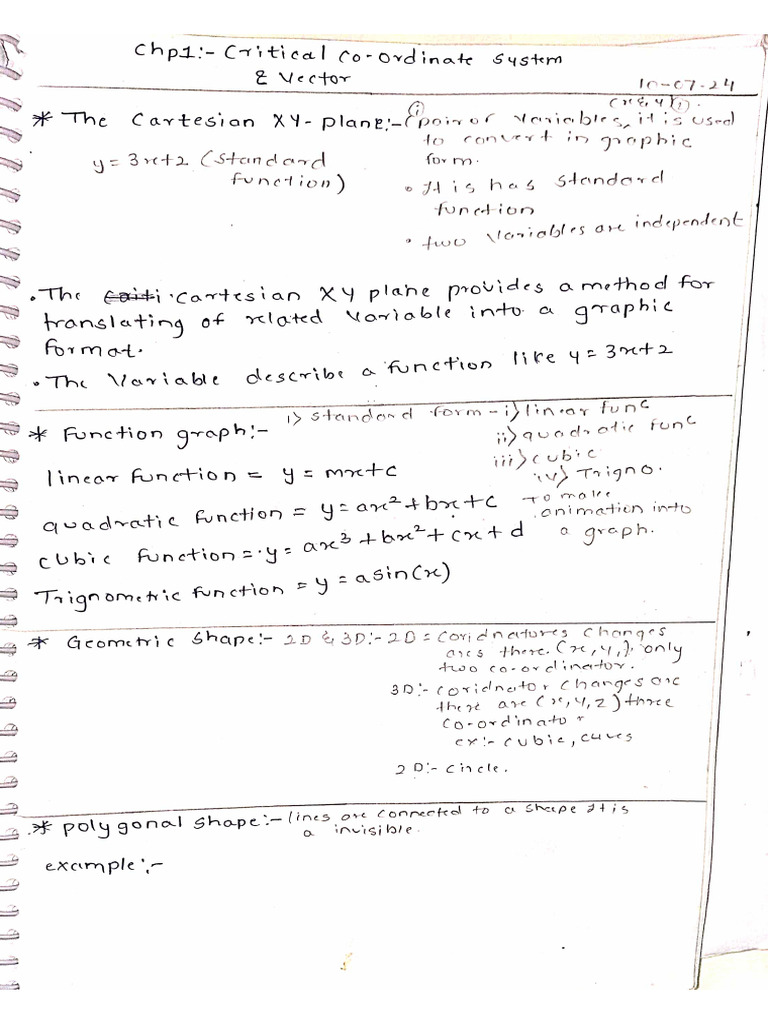 Chp1:- Critical Co-ordinate System
& Vector
10-07-24
(x & y) ①.
* The Cartesian XY-plane:- ① (pair of variables, it is used
to convert in graphic
form.
y = 3x+2 (standard
function)
• It is has standard
function
• two variables are independent
• The Cartesian XY plane provides a method for
translating of related variable into a graphic
format.
• The Variable describe a function like y = 3x+2
* Function graph:- i) standard form - i) linear func
ii) quadratic func
iii) cubic
iv) Trigno.
linear function = y = mx+c
quadratic function = y = ax²+bx+c
To make
animation into
a graph.
cubic function = y = ax³+bx²+cx+d
Trignometric function = y = asin(x)
* Geometric shape:- 2D & 3D:- 2D = coridnatures changes
ares there (x, y,). only
two co-ordinator.
3D:- coridnator changes are
there are (x, y, z) three
co-ordinator
ex:- cubic, cuves
2D:- circle.
* polygonal shape:- lines are connected to a shape It is
a invisible.
example:-